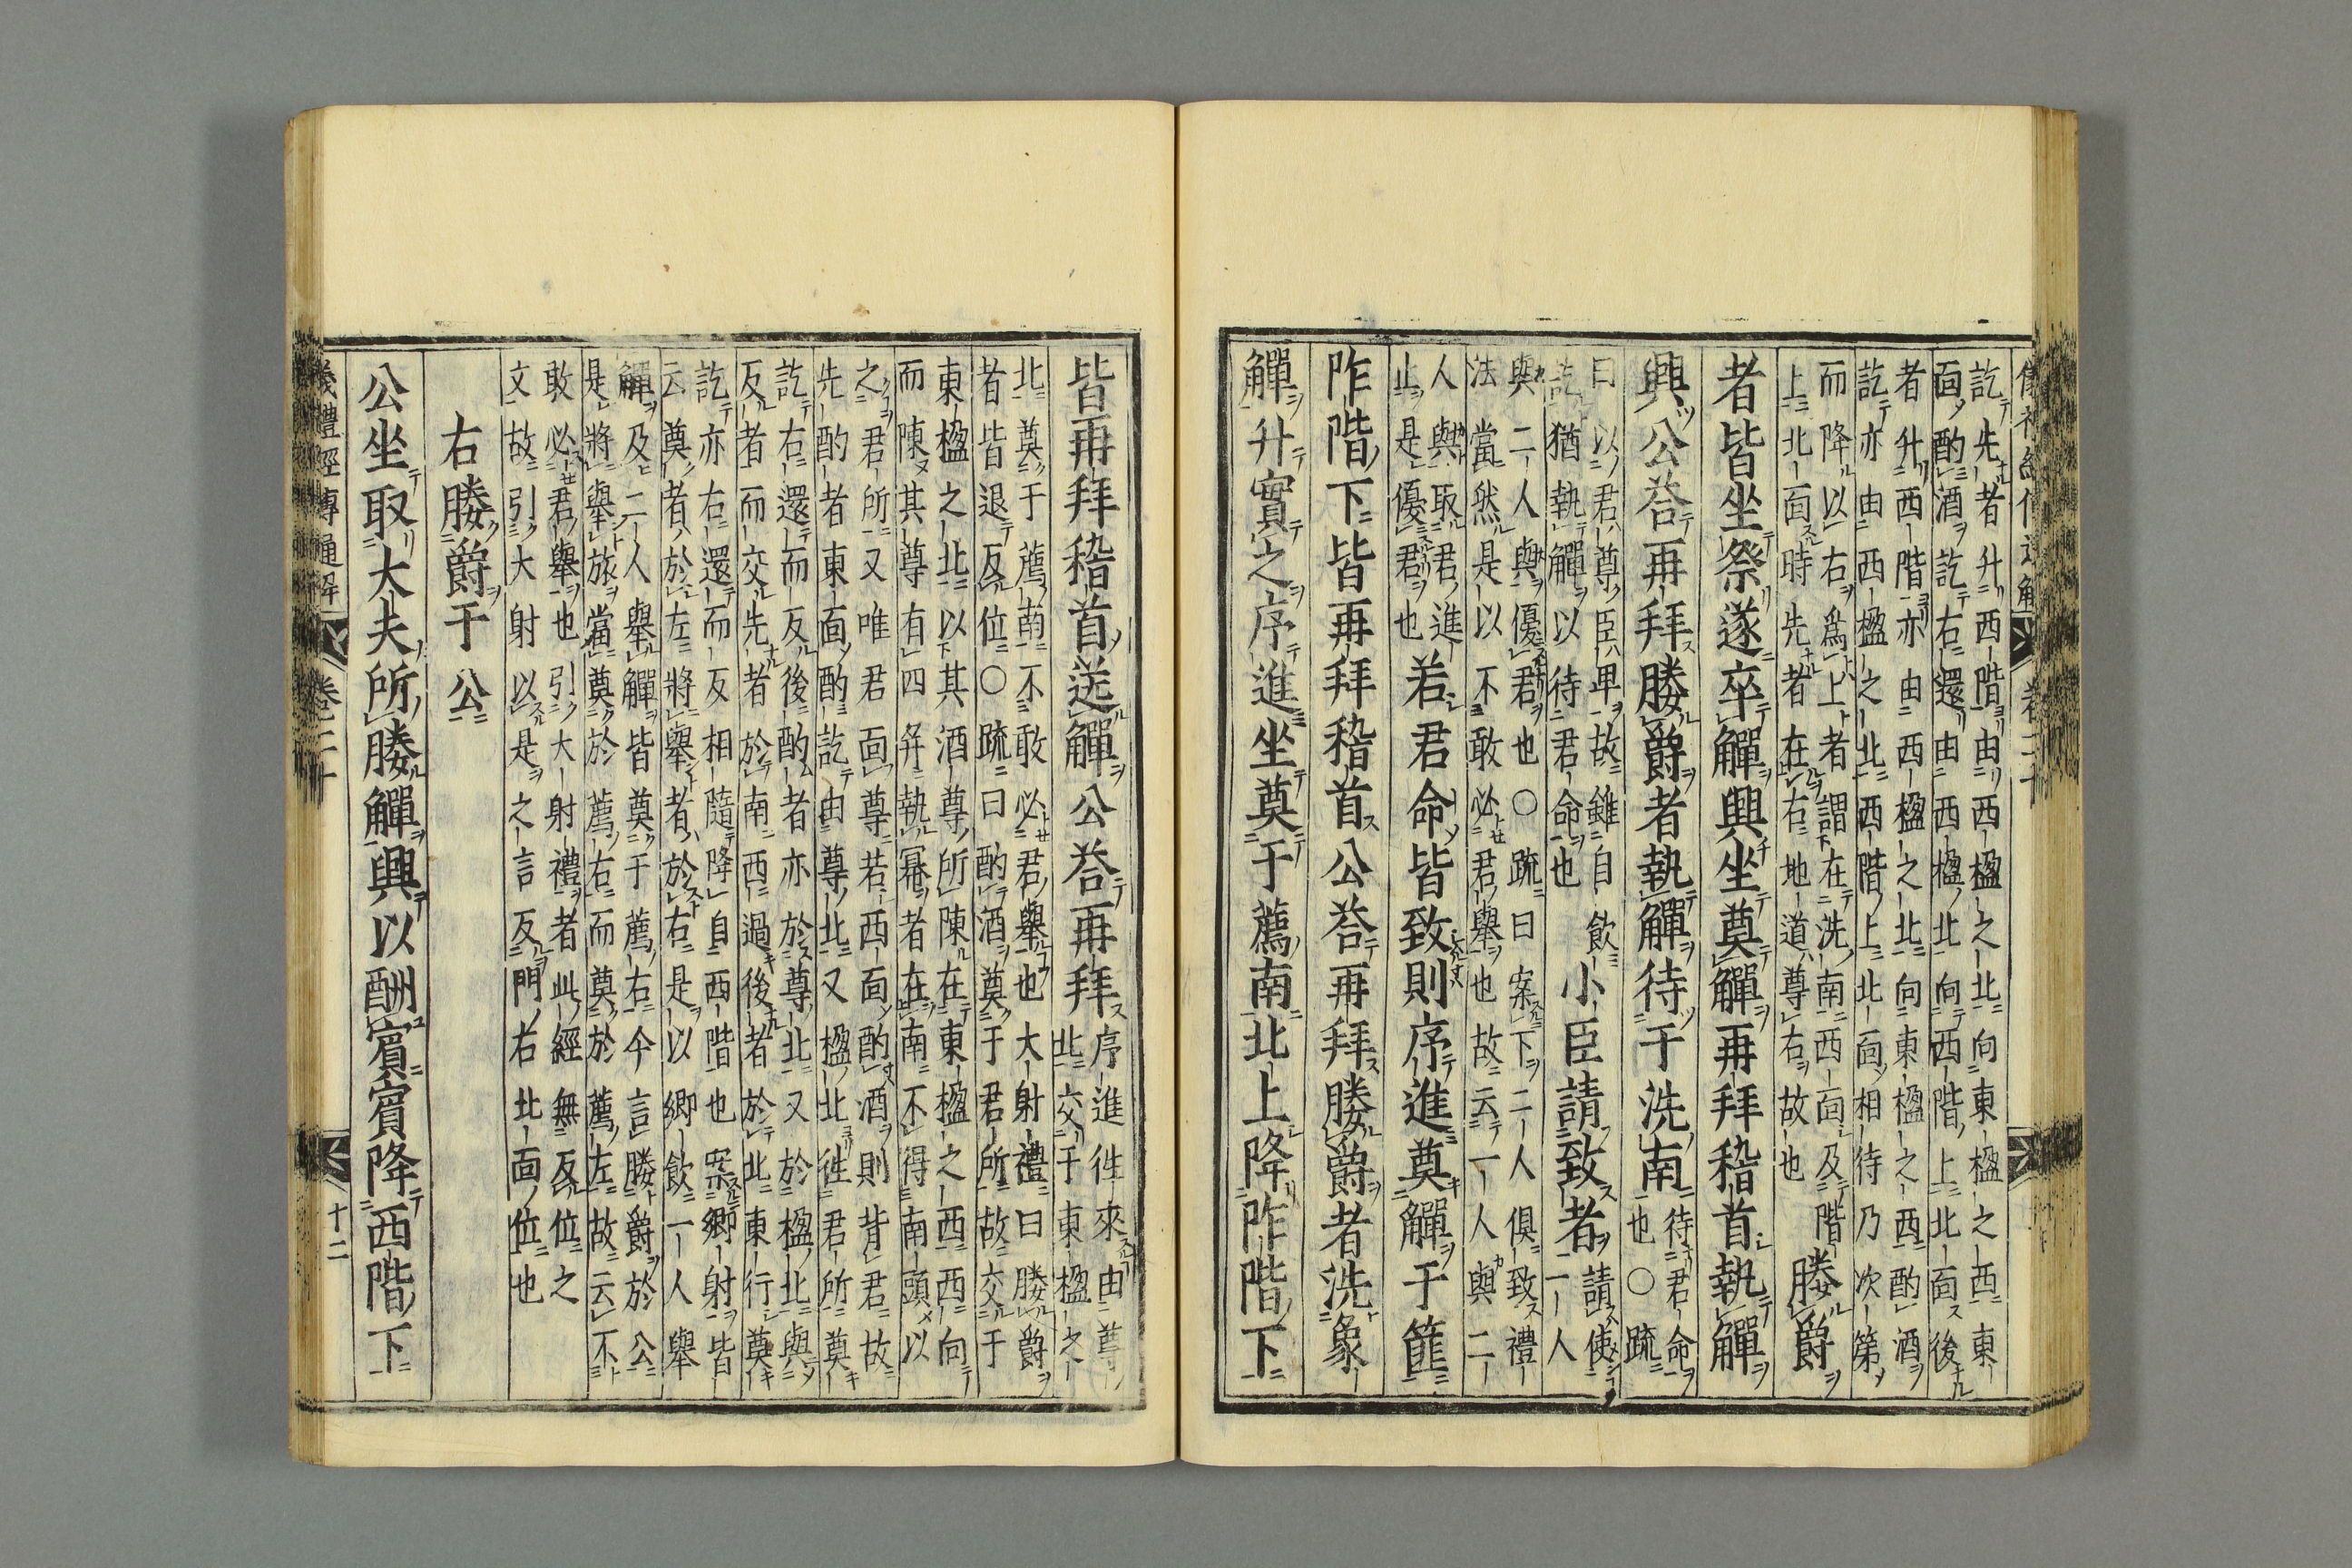 訖先者升西階由西楹之北向東楹之西東
面酌酒訖右還由西楹北向西階上北面後
者升西階亦由西楹之北向東楹之西酌酒
訖亦由西楹之北西階上北面相待乃次第
而降以右爲上者謂在洗南西面及階
上北面時先者在右地道尊右故也
媵爵
者皆坐祭遂卒觶興坐奠觶再拜稽首執觶
興公荅再拜媵爵者執觶待于洗南
待君命
也〇疏
曰以君尊臣卑故雖自飲
訖猶執觶以待君命也
小臣請致者
請使
一人
與二人與優君也〇疏曰案下二人俱致禮
法當然是以不敢必君舉也故云一人與二
人與取君進
止是優君也
若君命皆致則序進奠觶于篚
阼階下皆再拜稽首公荅再拜媵爵者洗象
觶升實之序進坐奠于薦南北上降阼階下
皆再拜稽首送觶公荅再拜
序進徃來由尊
北交于東楹之
北奠于薦南不敢必君舉也大射禮曰媵爵
者皆退反位〇疏曰酌酒奠于君所故交于
東楹之北以其酒尊所陳在東楹之西西向
而陳其尊有四并執冪者在南不得南頭以
之君所又唯君面尊若西面酌酒則背君故
先酌者東面酌訖由尊北又楹北徃君所奠
訖右還而反後酌者亦於尊北又於楹北與
反者而交先者於南西過後者於北東行奠
訖亦右還而反相隨降自西階也案鄉射皆
云奠者於左將舉者於右是以鄉飲一人舉
觶及二人舉觶皆奠于薦右今言媵爵於公
是將舉旅當奠於薦右而奠於薦左故云不
敢必君舉也引大射禮者此經無反位之
文故引大射以是之言反門右北面位也
右媵爵于公
公坐取大夫所媵觶興以酬賓賓降西階下
儀禮經傳通解 卷二十 十二